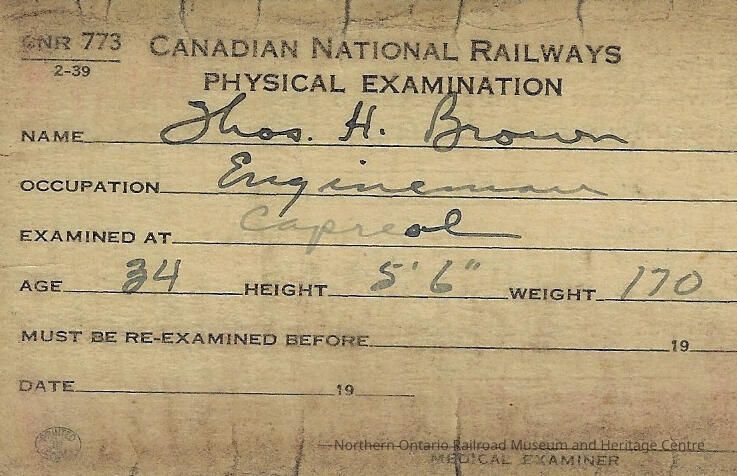 CNR 773
2-39
CANADIAN NATIONAL RAILWAYS
PHYSICAL EXAMINATION
NAME Thos. H. Brown
OCCUPATION Engineman
EXAMINED AT Capreol
AGE 34 HEIGHT 5'6" WEIGHT 170
MUST BE RE-EXAMINED BEFORE 19
DATE 19
Northern Ontario Railroad Museum and Heritage Centre
MEDICAL EXAMINER